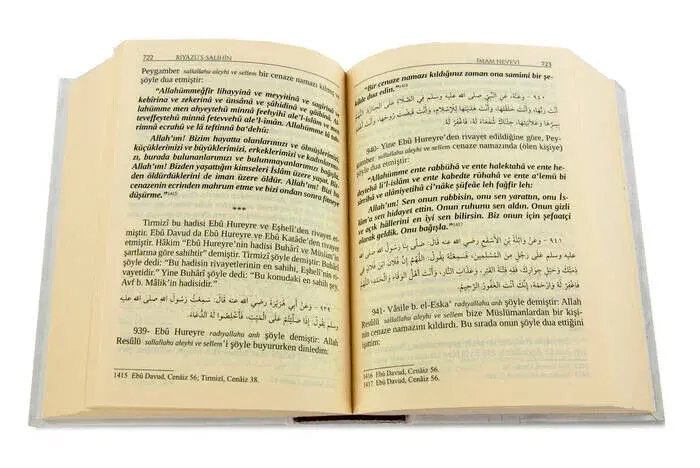 722 RIYÂZÜ'S-SALİHÎN
Peygamber sallallahu aleyhi ve sellem bir cenaze namazı kıldı ve
şöyle dua etmiştir:
“Allahümmeğfir lihayyinâ ve meyyitinâ ve sagirinâ ve
kebirina ve zekerinâ ve ünsânâ ve şâhidinâ ve gâibinâ. Al-
lahümme men ahyeytehû minnâ feehyihi ale'l-islâm ve men
teveffeytehû minnâ fetevvehû ale'l-îmân. Allahümme lâ tah-
rimnâ ecrahû ve lâ teftinnâ ba'dehû:
Allah'ım! Bizim hayatta olanlarımızı ve ölmüşlerimizi,
küçüklerimizi ve büyüklerimizi, erkeklerimizi ve kadınlarımı-
zı, burada bulunanlarımızı ve bulunmayanlarımızı bağışla.
Allah'ım! Bizden yaşattığın kimseleri İslâm üzere yaşat. Biz-
den öldürdüklerini de iman üzere öldür. Allah'ım! Bizi bu
cenazenin ecrinden mahrum etme ve bizi ondan sonra fitneye
düşürme.”1415
***
Tirmizî bu hadisi Ebû Hureyre ve Eşhelî'den rivayet et-
miştir. Ebû Davud da Ebû Hureyre ve Ebû Katâde'den rivayet
etmiştir. Hâkim “Ebû Hureyre'nin hadisi Buhârî ve Müslim'in
şartlarına göre sahihtir” demiştir. Tirmizî şöyle demiştir: Buhârî
şöyle dedi: “Bu hadisin rivayetlerinin en sahihi, Eşhelî'nin ri-
vayetidir.” Yine Buhârî şöyle dedi: “Bu konudaki en sahih şey,
Avf b. Mâlik'in hadisidir.”
٩٣٩- وعن أَبِي هُرَيْرَةَ رضي الله عنه قَالَ: سَمِعْتُ رَسُولَ الله صلى الله عليه
وسلم يَقُولُ: إِذَا صَلَّيْتُمْ عَلَى الْمَيِّتِ، فَأَخْلِصُوا لَهُ الدُّعَاءَ.
939- Ebû Hureyre radıyallahu anh şöyle demiştir: Allah
Resûlü sallallahu aleyhi ve sellem'i şöyle buyururken dinledim:
1415 Ebû Davud, Cenâiz 56; Tirmizî, Cenâiz 38.
İMAM NEVEVÎ 723
“Bir cenaze namazı kıldığınız zaman ona samimi bir şe-
kilde dua edin.”
٩٤٠- وَعَنْهُ، عَنِ النَّبِيِّ صلى الله عليه وسلم فِي الصَّلَاةِ عَلَى الْجَنَازَةِ: اللَّهُمَّ
أَنْتَ رَبُّهَا، وَأَنْتَ خَلَقْتَهَا، وَأَنْتَ هَدَيْتَهَا لِلْإِسْلَامِ، وَأَنْتَ
940- Yine Ebû Hureyre'den rivayet edildiğine göre, Pey-
gamber sallallahu aleyhi ve sellem cenaze namazında (ölen kişiye)
şöyle dua etmiştir:
“Allahümme ente rabbühâ ve ente halektehâ ve ente he-
deytehâ li'l-islâm ve ente kabedte rûhahâ ve ente a'lemü bi
sirrihâ ve alâniyetihâ ci'nâke şüfeâe leh fağfir leh:
Allah'ım! Sen onun rabbisin, onu sen yarattın, onu İs-
lâm'a sen hidayet ettin. Onun ruhunu sen aldın. Onun gizli
ve açık hâllerini en iyi sen bilirsin. Biz onun için şefaatçi
olarak geldik. Onu bağışla.”1417
٩٤١- وَعَنْ وَاثِلَةَ بْنِ الْأَسْقَعِ رضي الله عنه قَالَ: صَلَّى بِنَا رَسُولُ الله صلى الله
عليه وسلم عَلَى رَجُلٍ مِنَ الْمُسْلِمِينَ، فَسَمِعْتُهُ يَقُولُ: اللَّهُمَّ إِنَّ فُلَانَ بْنَ فُلَانٍ فِي
ذِمَّتِكَ وَحَبْلِ جِوَارِكَ، فَقِهِ فِتْنَةَ الْقَبْرِ، وَعَذَابَ النَّارِ، وَأَنْتَ أَهْلُ الْوَفَاءِ وَالْحَمْدِ، اللَّهُمَّ
فَاغْفِرْ لَهُ وَارْحَمْهُ، إِنَّكَ أَنْتَ الْغَفُورُ الرَّحِيمُ.
941- Vâsile b. el-Eska' radıyallahu anh şöyle demiştir: Allah
Resûlü sallallahu aleyhi ve sellem bize Müslümanlardan bir kişi-
nin cenaze namazını kıldırdı. Bu sırada onun şöyle dua ettiğini
işittim:
1416 Ebû Davud, Cenâiz 56.
1417 Ebû Davud, Cenâiz 56.